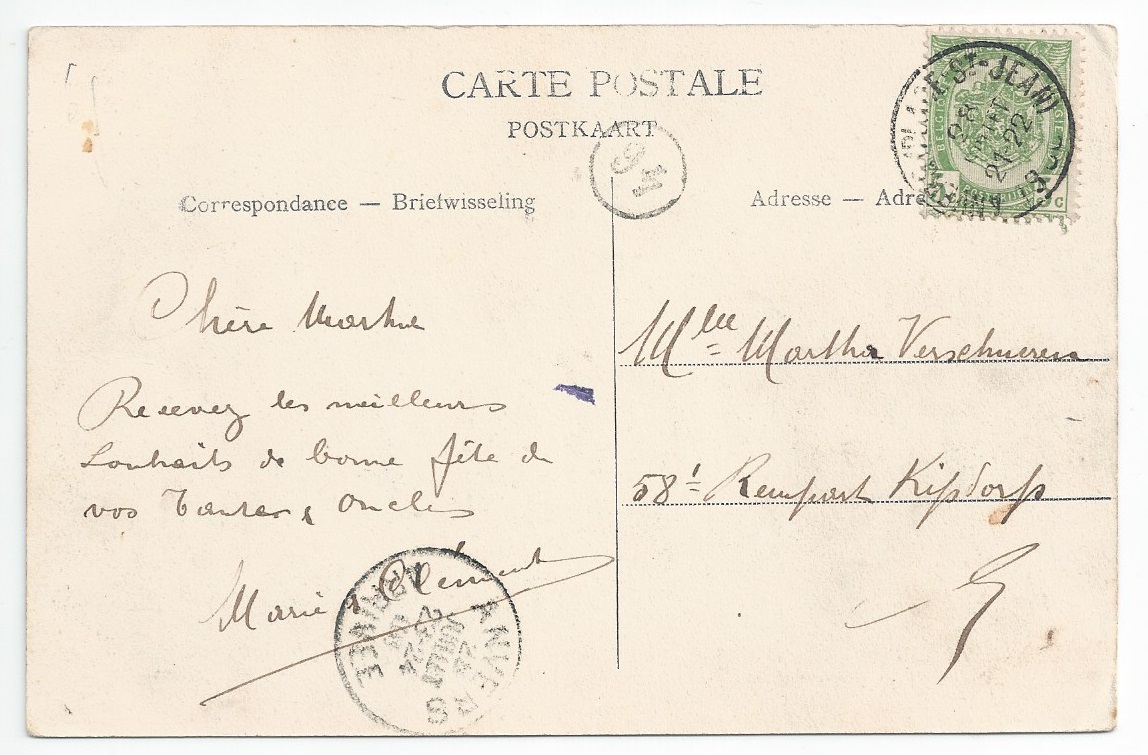 CARTE POSTALE
POSTKAART
Correspondance — Briefwisseling
Adresse — Adre
Chère Martha
Recevez les meilleurs
souhaits de bonne fête de
vos Tantes & Oncles
Marie & Clément
Mlle Martha Verschueren
58¹ Rempart Kipdorp
ANVERS (PLACE-ST-JEAN)
28
21-22
ANVERS
ARRIVÉE